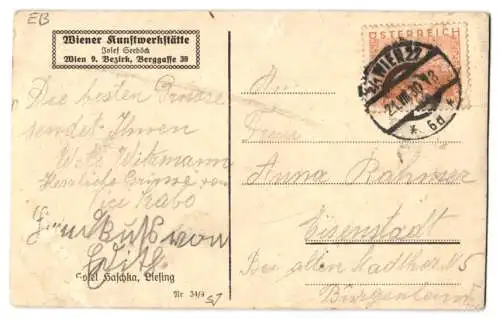 EB
Wiener Kunstwerkstätte
Josef Seeböck
Wien 9. Bezirk, Berggasse 39
Die besten Grüsse
sendet Ihnen
Witzmann
Herzliche Grüsse von
Kuß von
Haschka, Liesing
Nr 34/4
ÖSTERREICH
WIEN 27
21.III.30.18
* 6d *
An
Frau
Anna Rahmser
Eisenstadt
Bei alten Stadther N 5
Burgenland